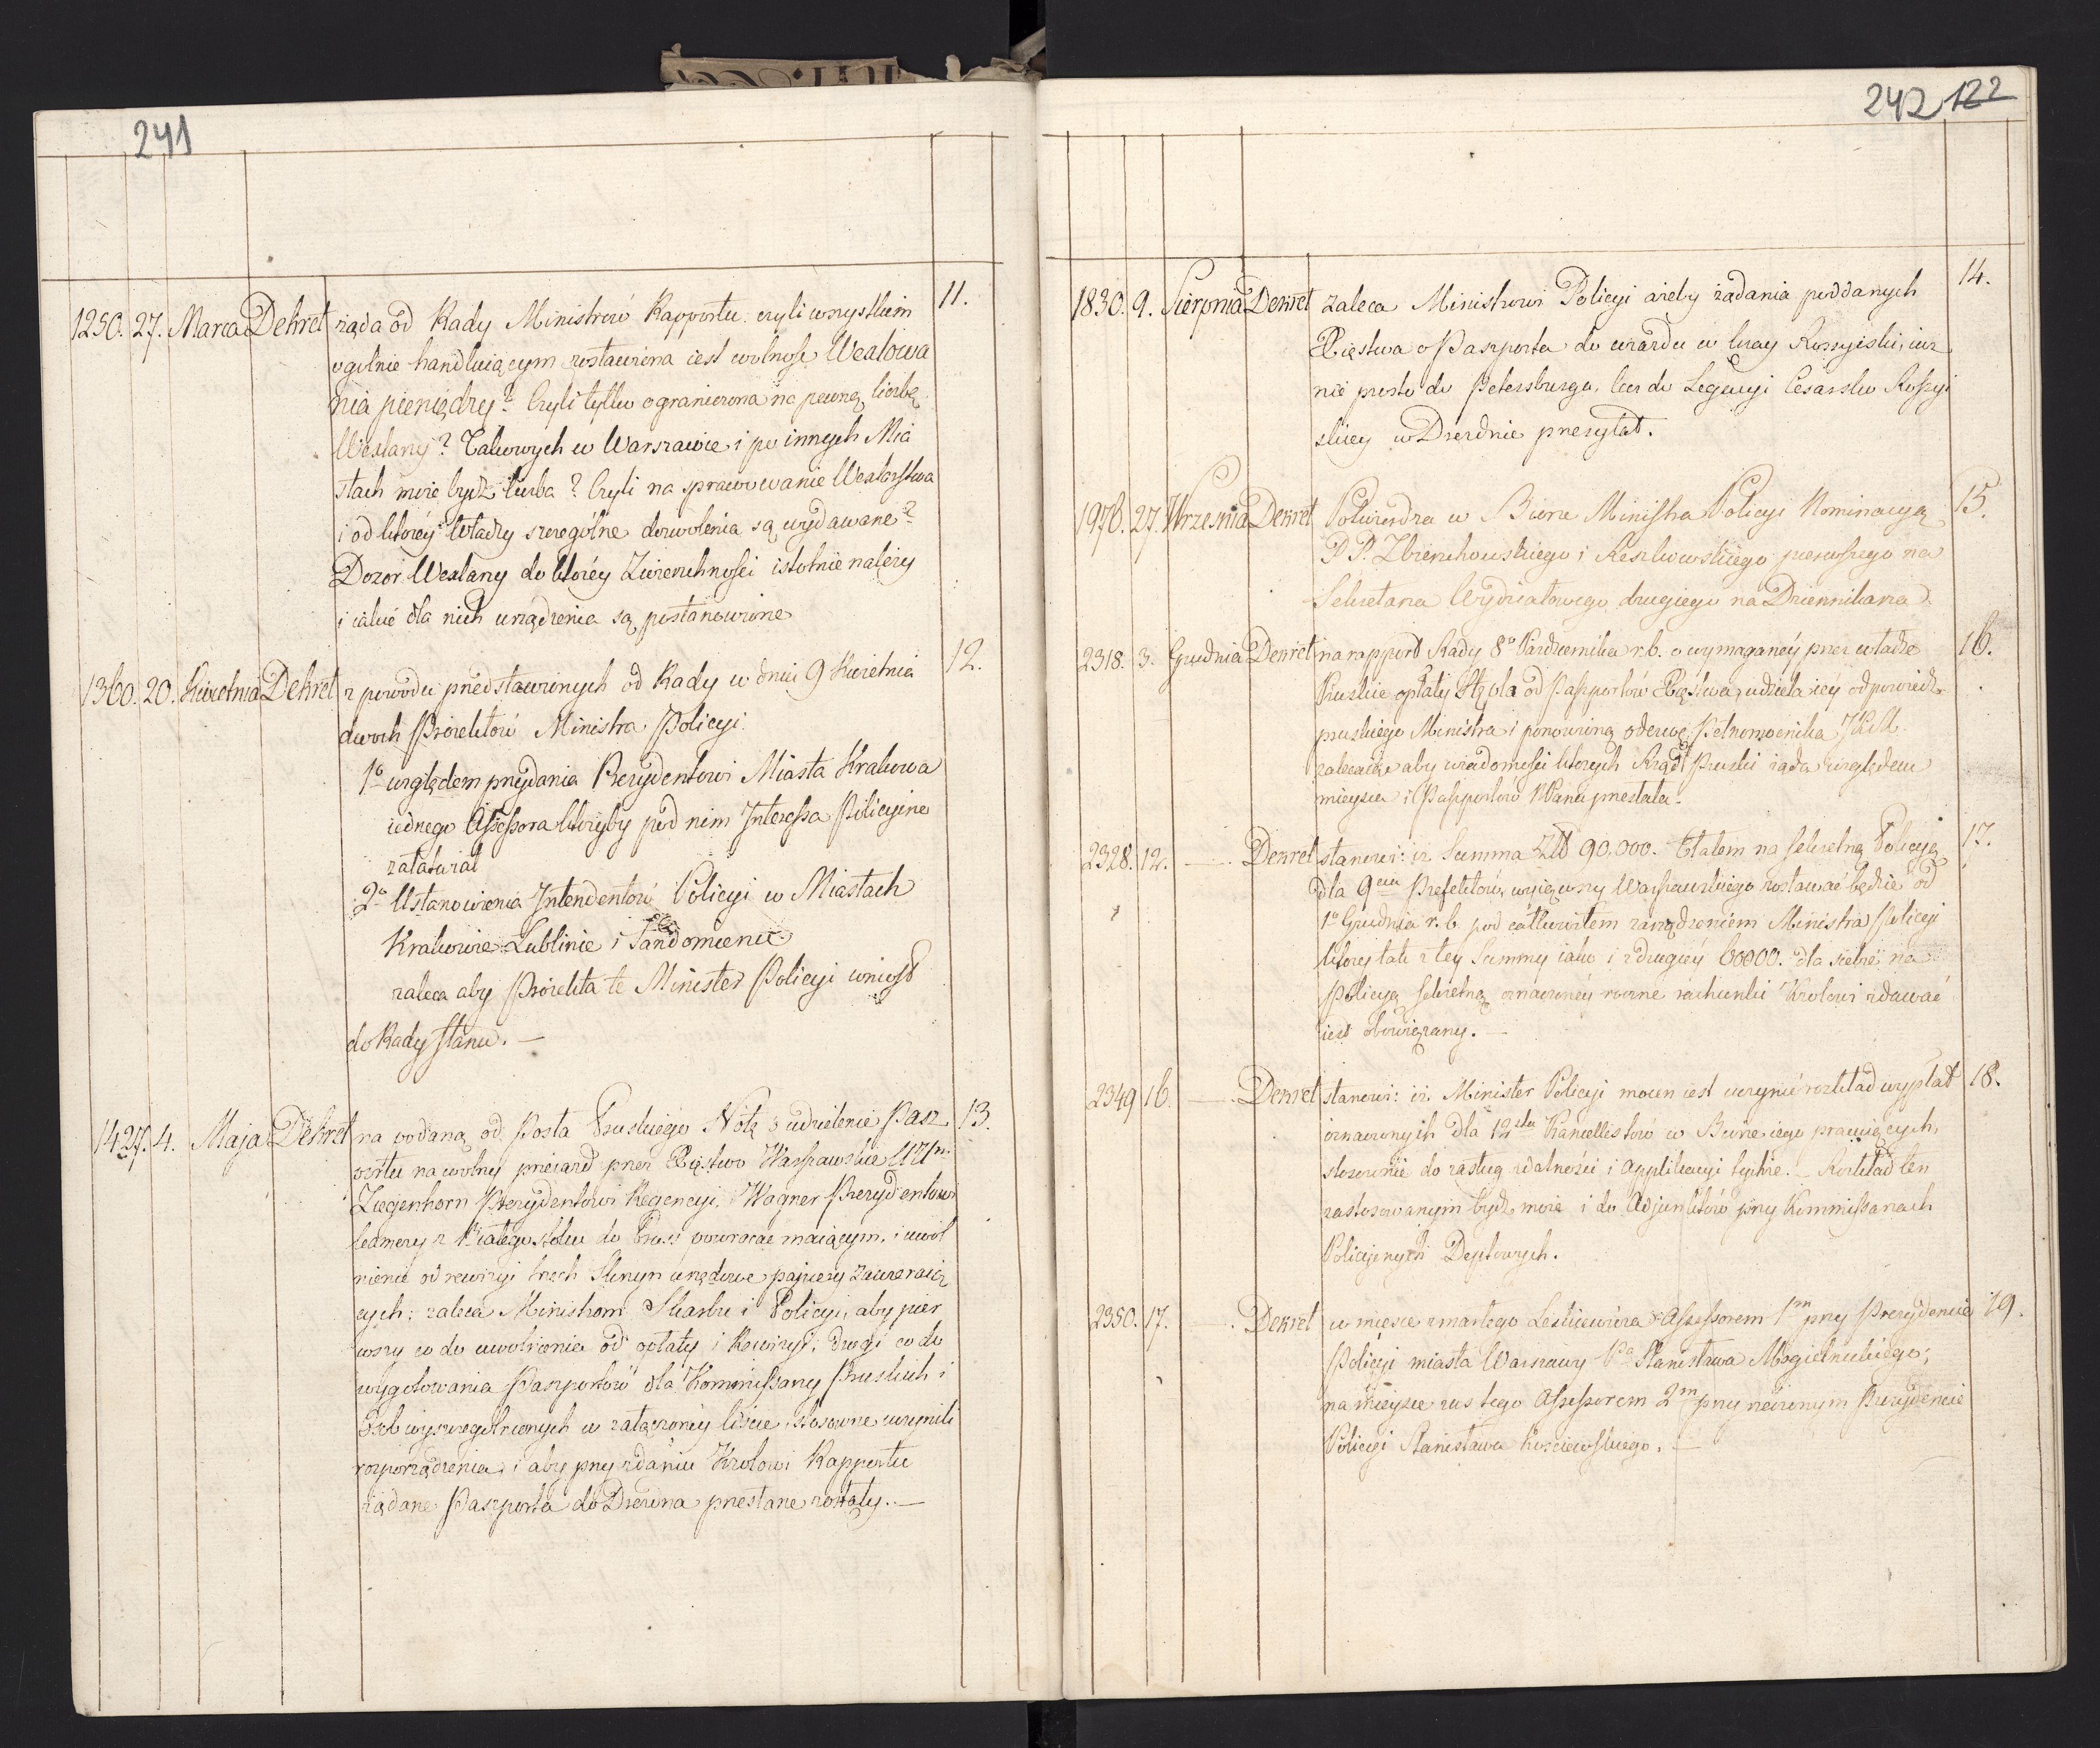 241
1250. 27. Marca Dekret żąda od Rady Ministrów Rapportu. czyli wszystkim 11.
ogolnie handluiącym zostawiona iest wolność Wexlowa
nia pieniędzy? Czyli tylko ograniczona na pewną liczbę
Wexlarzy? Takowych w Warszawie i po innych Mia
stach może bydź liczba? Czyli na sprawowanie Wexlarstwa
i od którey Władzy szczególne dozwolenia są wydawane?
Dozor Wexlarzy do którey Zwierzchności istotnie należy
i iakie dla nich urządzenia są postanowione
1360. 20. Kwietnia Dekret z powodu przedstawionych od Rady w dniu 9 Kwietnia 12.
dwoch Proiektów Ministra Policyi.
1º względem przydania Prezydentowi Miasta Krakowa
iednego Assessora któryby pod nim Interessa Policyine
załatwiał
2º Ustanowienia Intendentów Policyi w Miastach
Krakowie Lublinie i Sandomierzu
zaleca aby Proiekta te Minister Policyi wniosł
do Rady Stanu. —
1427. 4. Maja Dekret na podaną od Posła Pruskiego Notę o udzielenie Pasz 13.
portu na wolny przeiazd przez Xięstwo Warszawskie
Ziegenhorn Prezydentowi Regencyi, Wagner Prezydentowi
kamery z Białego Stoku do Pruss powracać maiącym, i uwol
nienie od rewizyi trzech Skrzyn urzędowe papiery zawieraią
cych; zaleca Ministrom Skarbu i Policyi, aby pier
wszy co do uwolnienia od opłaty i Rewizyi; drugi co do
wygotowania Paszportów dla Kommissarzy Pruskich i
Osób wyszczególnionych w załączoney liście, stosowne uczynili
rozporządzenia, i aby przy zdaniu Krolowi Rapportu
żądane Paszporta do Drezna przesłane zostały. —
242 122
1830. 9. Sierpnia Dekret zaleca Ministrowi Policyi ażeby żądania poddanych 14.
Xięstwa o Paszporta do wiazdu w kray Rossyiski, iuz
nie prosto do Petersburga, lecz do Legacyi Cesarsko Rossyi
skiey w Dreznie przesyłał.
1976. 27. Września Dekret Potwierdza w Biorze Ministra Policyi Nominacyą 15.
P.P. Zbierzchowskiego i Keszkowskiego pierwszego na
Sekretarza Wydziałowego drugiego na Dziennikarza
2318. 3. Grudnia Dekret na rapport Rady 8º Października r.b. o wymaganéy przez władze 16.
Pruskie opłaty Stępla od Paszportów Xięstwa, udziela iéy odpowiedź
pruskiego Ministra i ponowioną odezwę Pełnomocnika JKM.
zalecaiąc aby wiadomości których Rząd Pruski żąda względem
mieysca i Passportów Wana przesłała.
2328. 12. — Dekret stanowi: iż Summa Złł 90,000. Etatem na sekretną Policyę 17.
dla 9ciu Prefektów, wyiąwszy Warszawskiego zostawać będzie od
1º Grudnia r.b. pod całkowitem zarządzeniem Ministra Policyi
który tak z tey Summy iako i z drugiéy 60000. dla siebie na
Policyą sekretną oznaczonéy roczne rachunki Krolowi zdawać
iest obowiązany. —
2349 16. — Dekret stanowi: iż Minister Policyi mocen iest uczynić rozkład wypłat 18.
oznaczonych dla 12stu Kancellistów w Biorze iego pracuiących,
stosownie do zasług zdatności i applikacyi tychże. — Rozkład ten
zastosowanym bydź może i do Adjunktów przy Kommissarzach
Policyinych Deptowych.
2350. 17. — Dekret w mieysce zmarłego Leskiewicza Assessorem 1m przy Prezydencie 19.
Policyi miasta Warszawy Pa Stanisława Mogielnickiego;
na mieysce zas tego Assessorem 2m przy rzeczonym Prezydencie
Policyi Stanisława Kosciewskiego. —